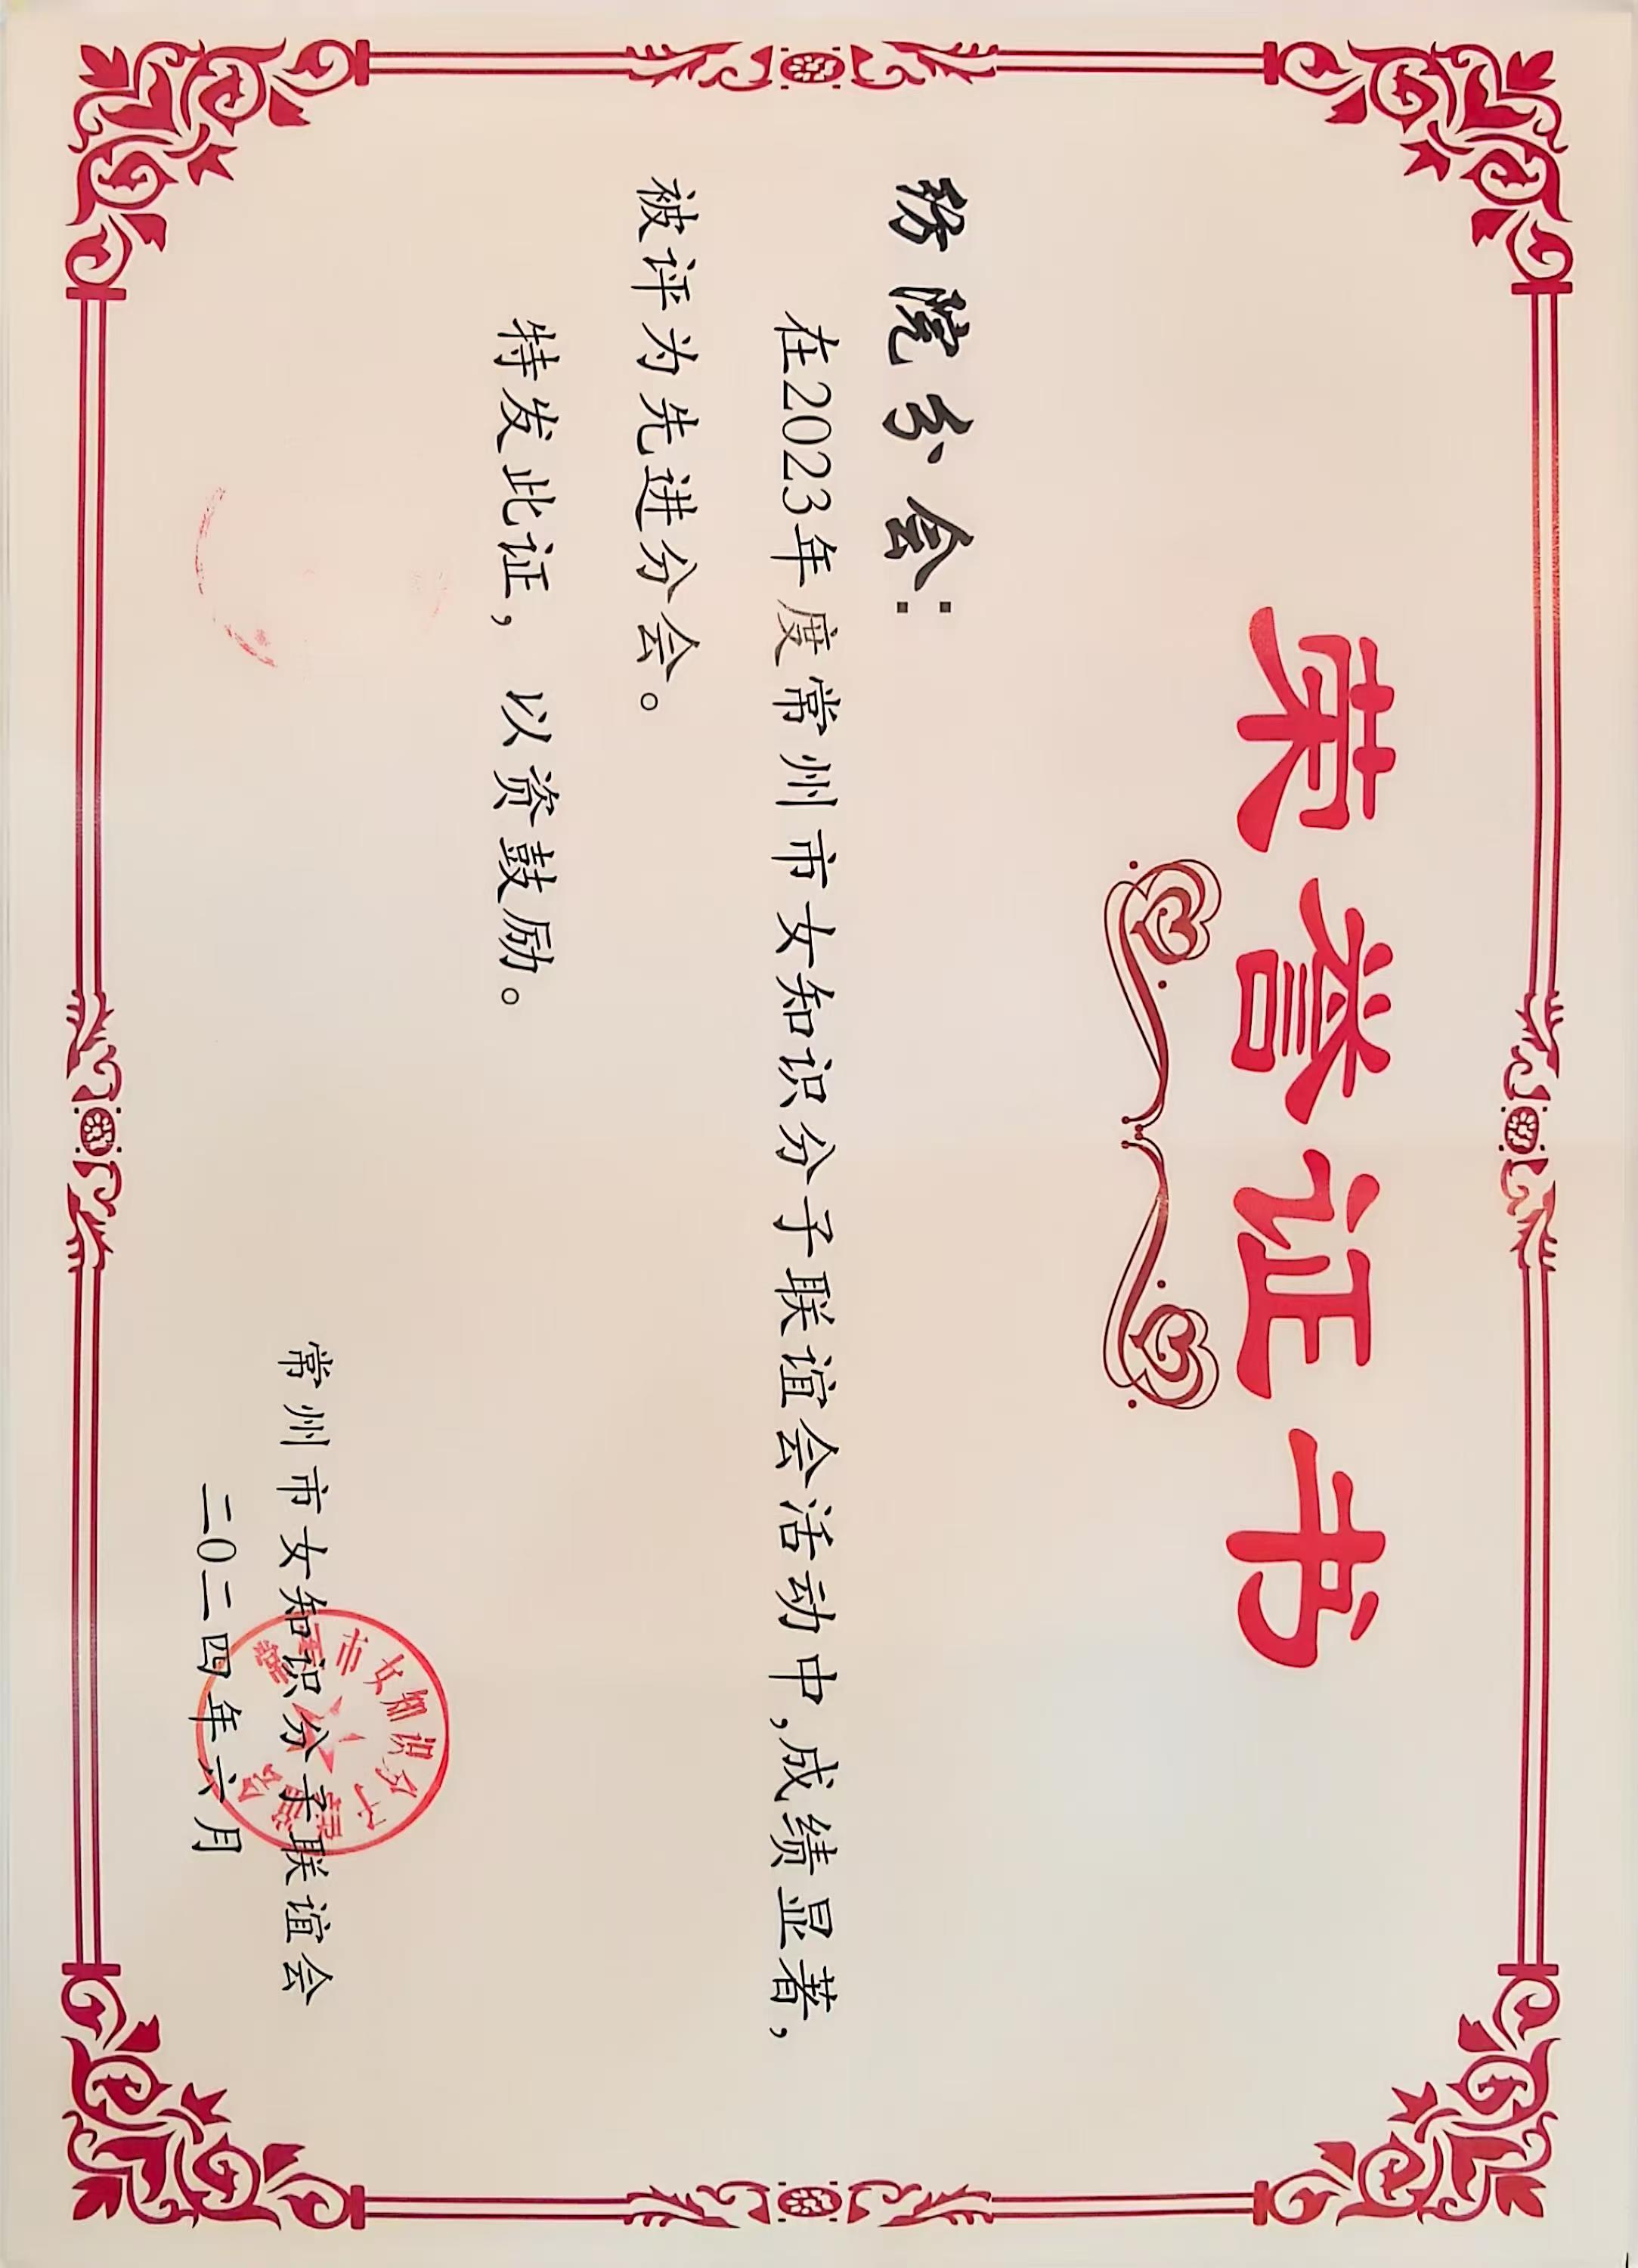 荣誉证书
纺院分会：
在2023年度常州市女知识分子联谊会活动中，成绩显著，
被评为先进分会。
特发此证，以资鼓励。
常州市女知识分子联谊会
二〇二四年六月
常州市女知识分子联谊会